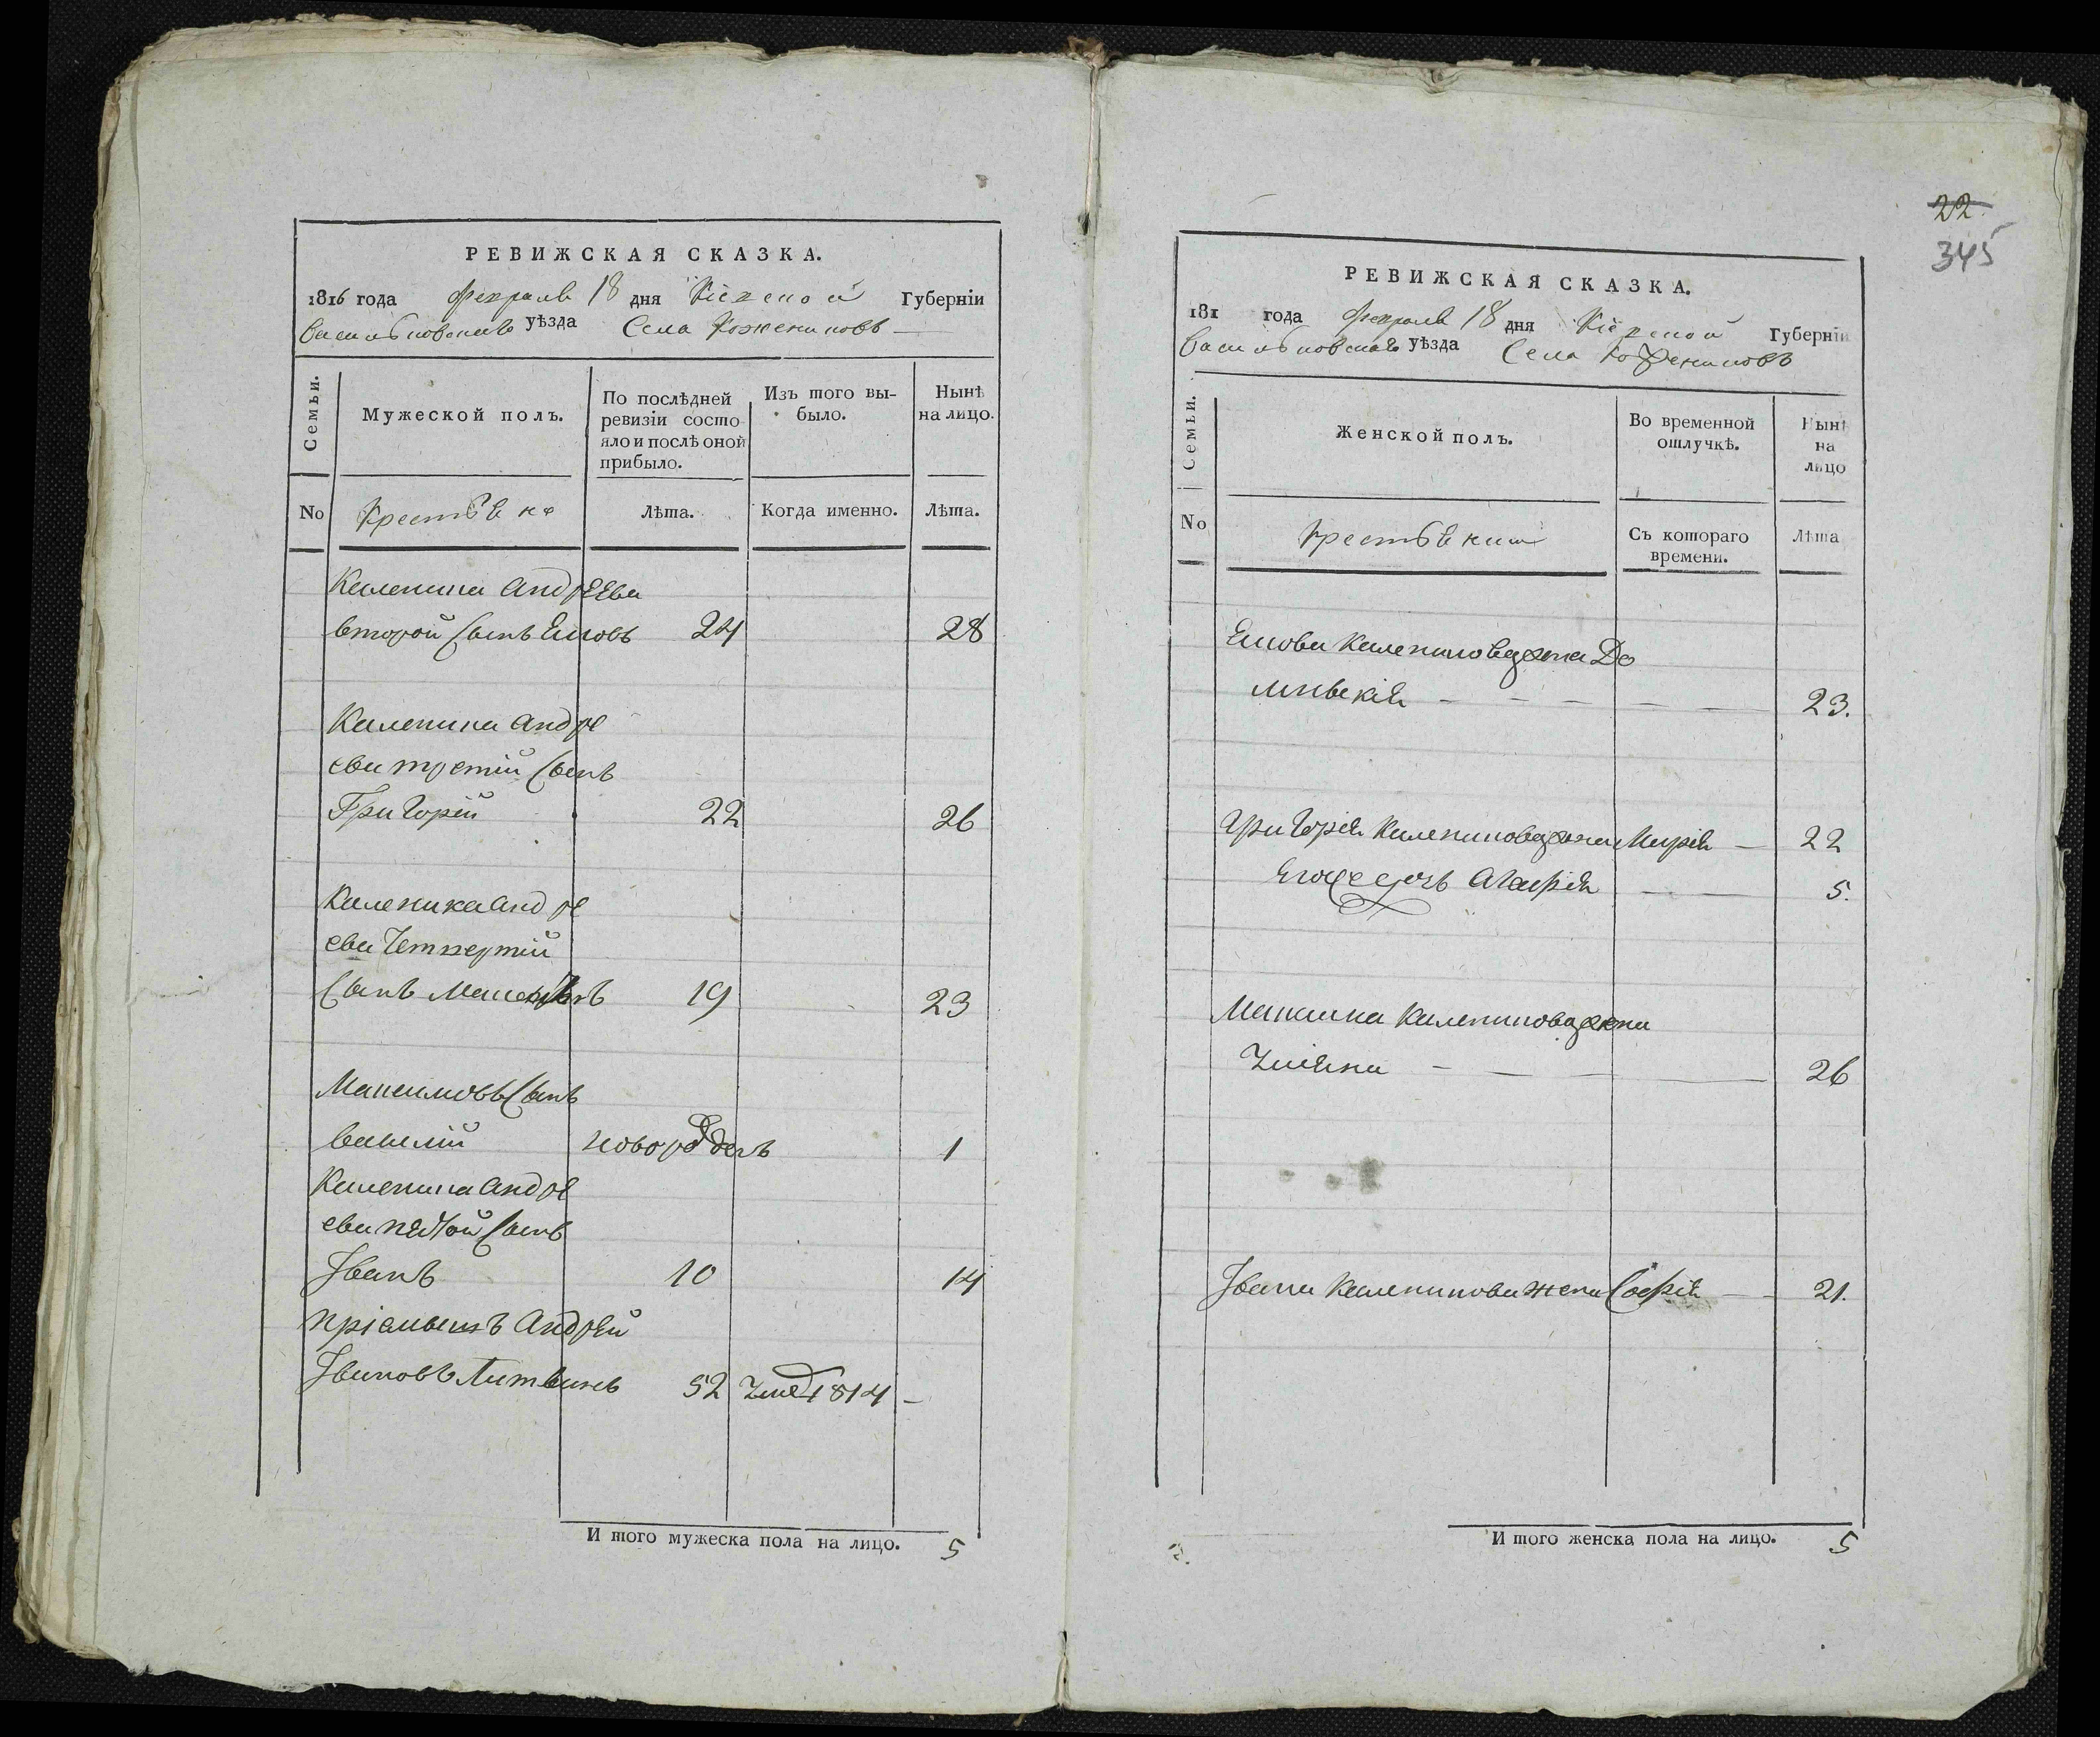 РЕВИЖСКАЯ СКАЗКА.
1816 года Февраля 18 дня Кіевской Губерніи
Васильковскаго уѣзда Села Кожениковъ
Семьи.
Мужеской полъ.
По послѣдней ревизіи состояло и послѣ оной прибыло.
Изъ того выбыло.
Нынѣ на лицо.
No
Крестьяне
Лѣта.
Когда именно.
Лѣта.
Каленика Андреева
второй Сынъ Яковъ 24 28
Каленика Андре
ева третій Сынъ
Григорій 22 26
Каленика Андре
ева Четвертій
Сынъ Максимъ 19 23
Максимовъ Сынъ
Василій новорожденъ 1
Каленика Андре
ева пятой Сынъ
Іванъ 10 14
пріемышъ Андрей
Івановъ Литвинъ 52 Умер 1814 –
И того мужеска пола на лицо. 5
22.
345
РЕВИЖСКАЯ СКАЗКА.
181 года Февраля 18 дня Кіевской Губерніи
Васильковскаго уѣзда Села Кожениковъ
Семьи.
Женской полъ.
Во временной отлучкѣ.
Нынѣ на лицо
No
крестьянки
Съ котораго времени.
Лѣта
Якова Каленикова жена До
мникія – – – – – 23.
Григорія Каленикова жена Марія – 22
Его дочь Агафія – 5.
Максима Каленикова жена
Уліяна – – – – 26
Івана Каленикова жена Софія – 21.
И того женска пола на лицо. 5